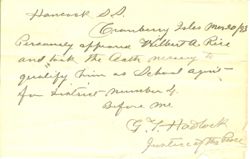 Hancock S.S.
Cranberry Isles Mar 20/93
Personaly appeared Wilbert A. Rice
and took the Oath nessary to
qualify him as School agent
for District number 4.
Before me
G. T. Hadlock
Justice of the Peace